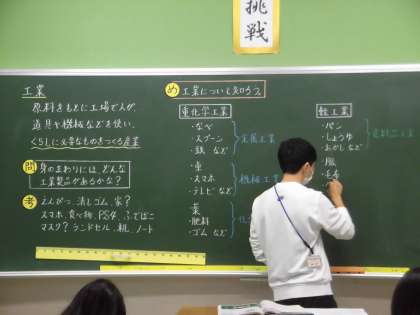 挑戦
工業
原料をもとに工場で人が、
道具や機械などを使い、
くらしに必要なものをつくる産業
問 身のまわりには、どんな
工業製品があるかな？
考 えんぴつ、消しゴム、家？
スマホ、食べ物、PS4、ふでばこ
マスク？ランドセル、机、ノート
め 工業について知ろう
重化学工業
・なべ
・スプーン
・鉄 など
金属工業
・車
・スマホ
・テレビ など
機械工業
・薬
・肥料
・ゴム など
軽工業
・パン
・しょうゆ
・おかし など
・服